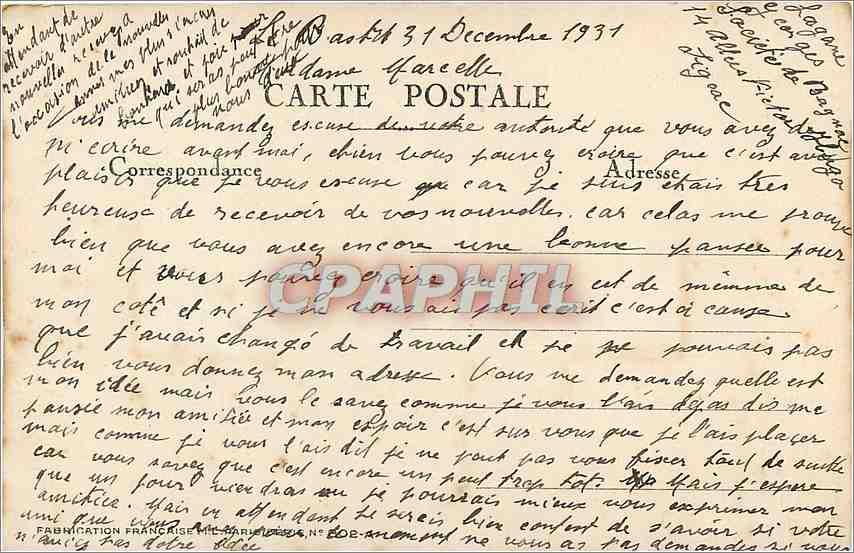 31 Decembre 1931
Madame Marcelle
CARTE POSTALE
Vous me demandez escuse de votre autorité que vous avez de
m'ecrire avant moi, ebien vous pouvez croire que c'est avec
Correspondance
Adresse
plaisir que je vous escuse car je suis etais tres
heureuse de recevoir de vos nouvelles. car celas me prouve
bien que vous avez encore une bonne pansée pour
moi et vous pouvez croire qu'il en est de mêmme de
CPAPHIL
mon coté et si je ne vous ais pas ecrit c'est à cause
que j'avais changé de travail et je ne pouvais pas
bien vous donnez mon adresse. Vous me demandez quelle est
mon idée mais vous le savez comme je vous l'ais dejas dis me
pansée mon amitiée et mon espoir c'est sur vous que je l'ais plaçer
mais comme je vous l'ais dit je ne peut pas vous fixer tout de suitte
car vous savez que c'est encore un peut trop tot. Mais j'espere
que un jour viendras ou je pourrais mieux vous exprimer mon
amitiée. Mais en attendant je serais bien contant de s'avoir si votre
FABRICATION FRANÇAISE
amie que vous moment ne vous as pas demandée si vous
n'aviez pas d'otre idée
En
attendant de
recevoir d'autre
nouvelles recevez a
l'occasion de la nouvelle
année mes plus sinceres
et souhait de
bonheur et
qui seras peut etre
plus pour
nous
Lagane
Georges Bagnac
Societé de
14 Allées Victor Hugo
Figeac